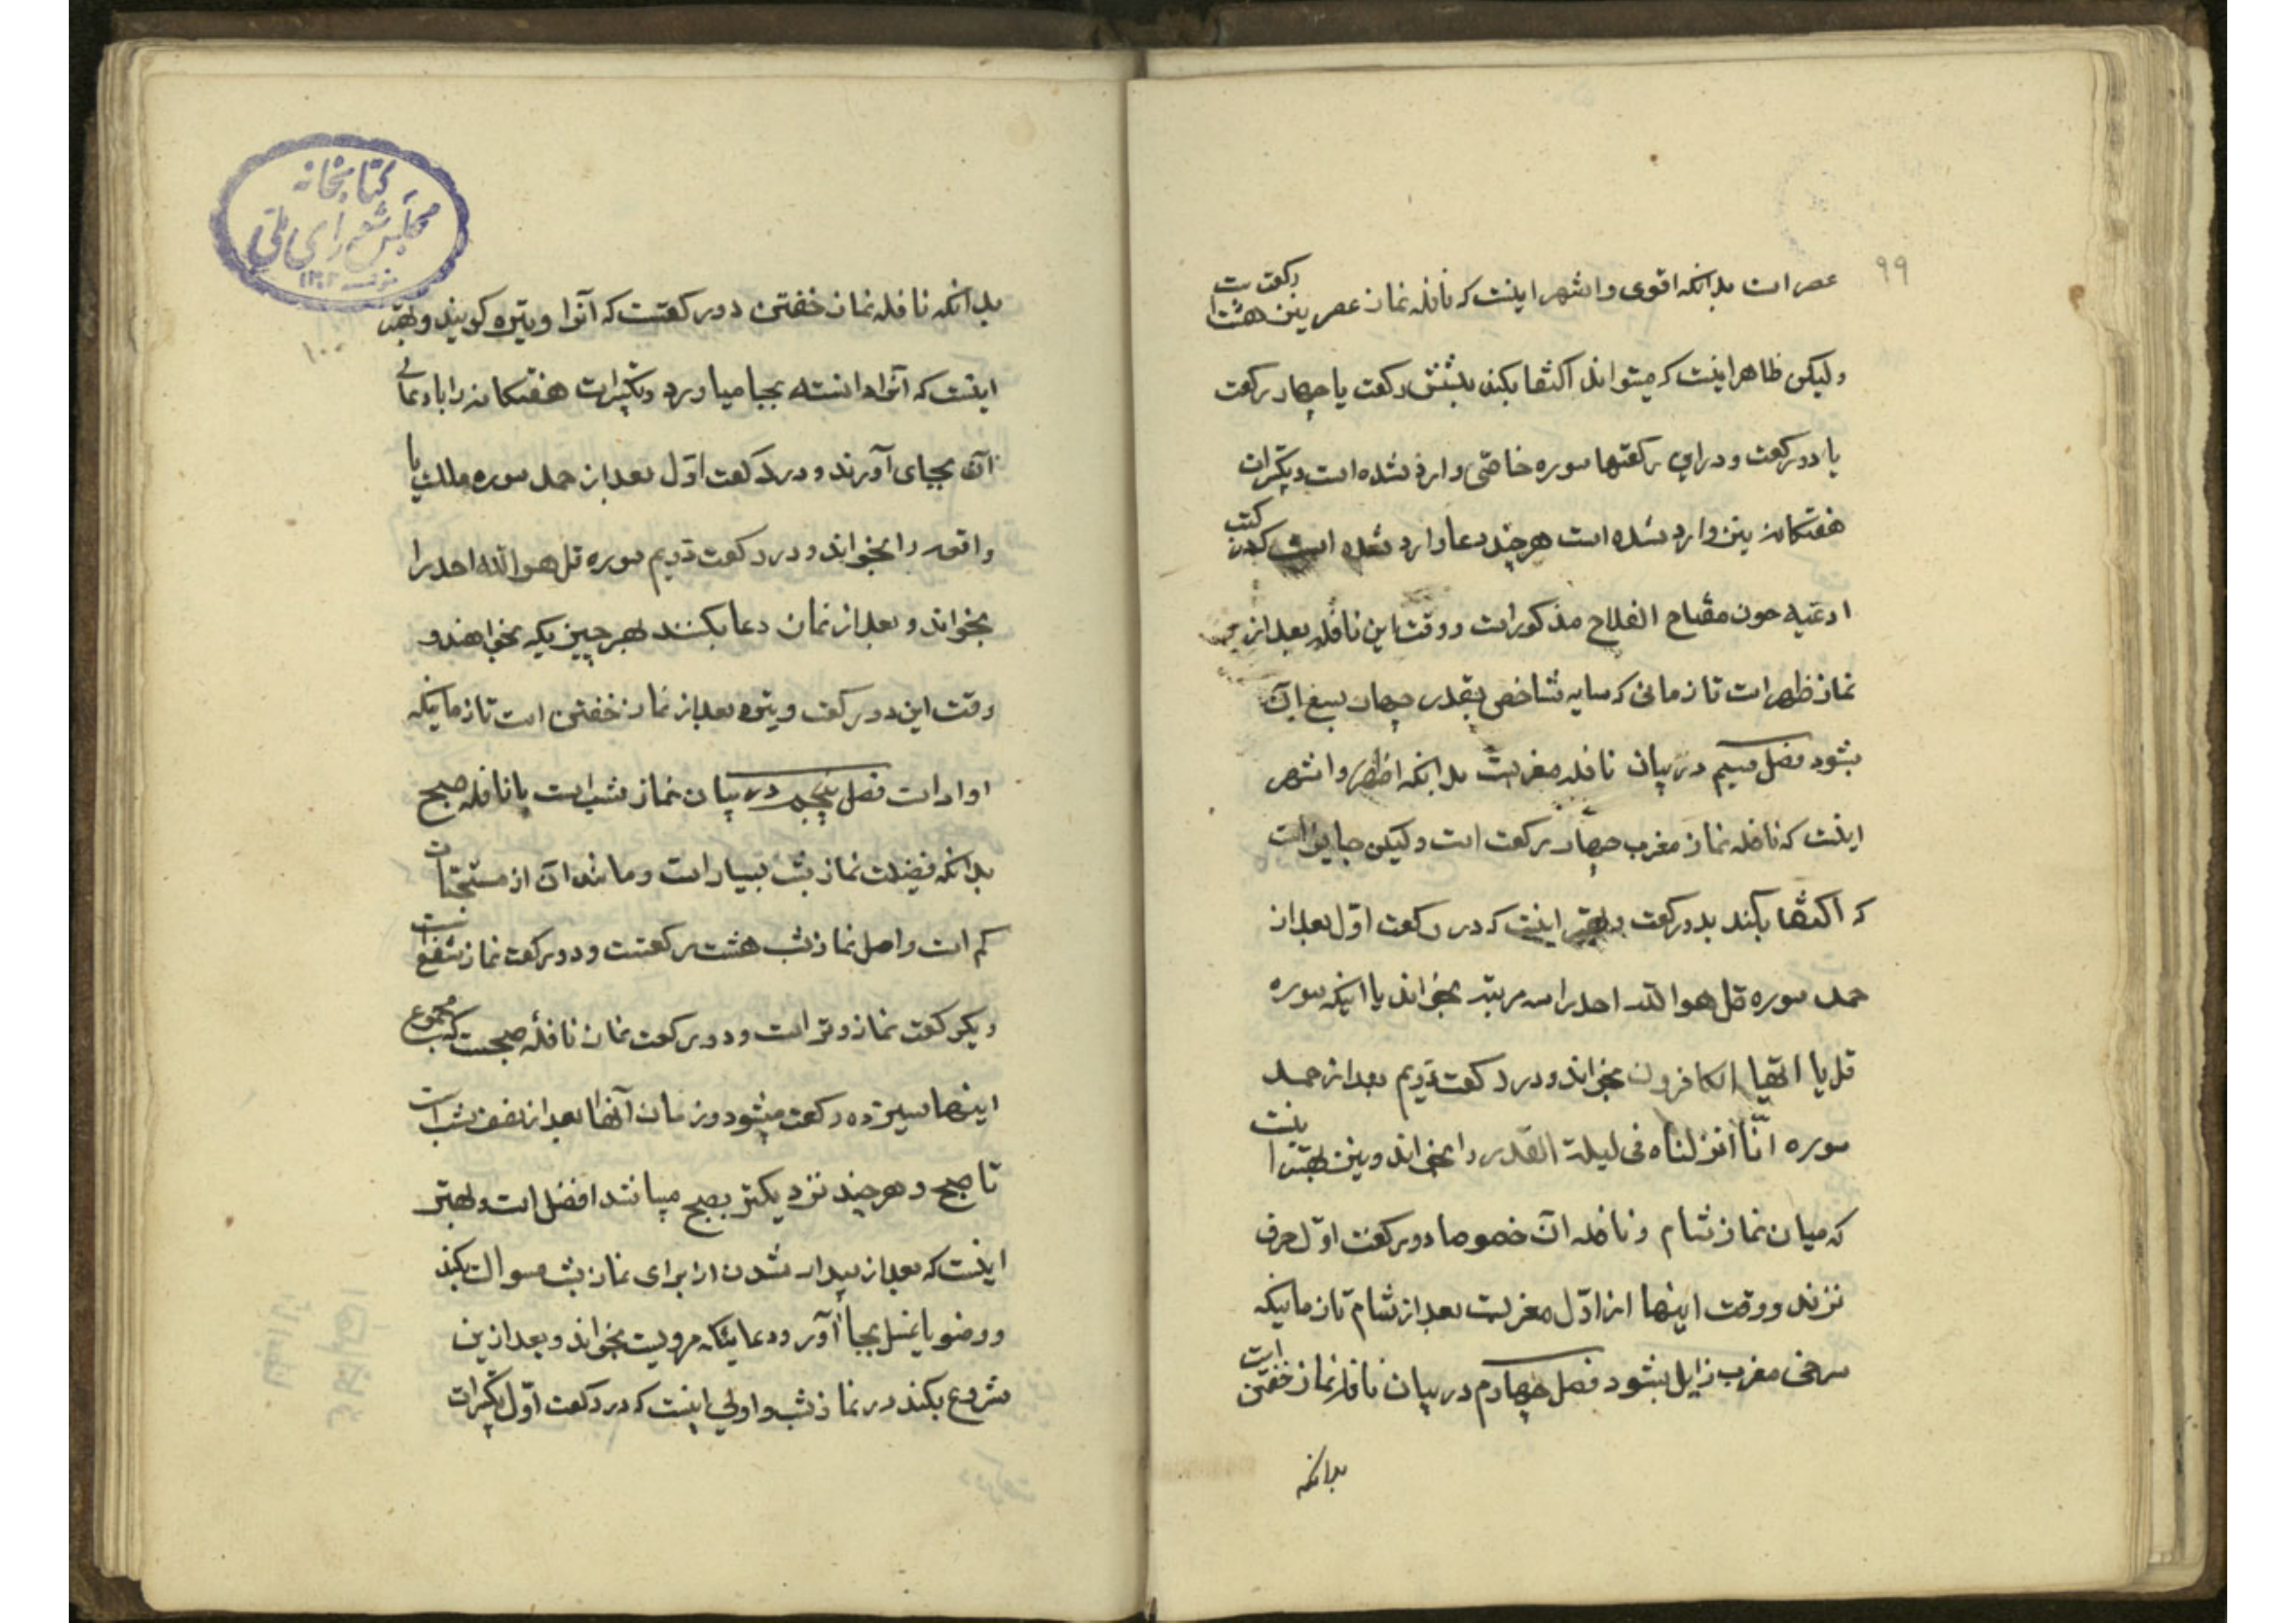 ۹۹
عصر است بدانکه اقوی و اشهر اینست که نافله نماز عصر نیز هشت رکعت است
ولیکن ظاهر اینست که میتواند اکتفا بکند بشش رکعت یا چهار رکعت
یا دو رکعت و در این رکعتها سوره خاصّی وارد نشده است و تکبیرات
هفتکانه نیز وارد نشده است هر چند دعا وارد شده است که در کتب
ادعیه چون مفتاح الفلاح مذکور است و وقت این نافله بعد از
نماز ظهر است تا زمانی که سایه شاخص بقدر چهار سبع آن
بشود فصل سیم در بیان نافله مغربست بدانکه اظهر و اشهر
اینست که نافله نماز مغرب چهار رکعت است ولیکن جایز است
که اکتفا بکند بدو رکعت و بهتر اینست که در رکعت اوّل بعد از
حمد سوره قل هو الله احد را سه مرتبه بخواند یا اینکه سوره
قل یا ایّها الکافرون بخواند و در رکعت دویم بعد از حمد
سوره انّا انزلناه فی لیلة القدر را بخواند و نیز بهتر اینست
که میان نماز شام و نافله آن خصوصا دو رکعت اوّل حرف
نزند و وقت اینها از اوّل مغربست بعد از شام تا زمانیکه
سرخی مغرب زایل بشود فصل چهارم در بیان نافله نماز خفتن است
بدانکه
کتابخانه
مجلس شورای ملی
۱۰۰
بدانکه نافله نماز خفتن دو رکعتست که آنرا وتیره کویند و بهتر
اینست که آنرا نشسته بجا میاورد و تکبیرات هفتکانه را با دعای
آن بجای آورند و در رکعت اوّل بعد از حمد سوره ملک یا
واقعه را بخواند و در رکعت دویم سوره قل هو الله احد را
بخواند و بعد از نماز دعا بکنند بهر چیزیکه بخواهند و
وقت این دو رکعت وتیره بعد از نماز خفتن است تا زمانیکه
او اداست فصل پنجم در بیان نماز شب است با نافله صبح
بدانکه فضیلت نماز شب بسیار است و مانند آن از مستحبّات
کم است و اصل نماز شب هشت رکعتست و دو رکعت نماز شفع است
و یک رکعت نماز وتر است و دو رکعت نماز نافله صبحست که مجموع
اینها سیزده رکعت میشود و زمان آنها بعد از نصف شب است
تا صبح و هر چند نزدیکتر بصبح میباشد افضل است و بهتر
اینست که بعد از بیدار شدن از برای نماز شب مسواک بکند
و وضو یا غسل بجا آورد و دعایئکه مرویست بخواند و بعد از ین
شروع بکند در نماز شب و اولی اینست که در رکعت اوّل تکبیرات